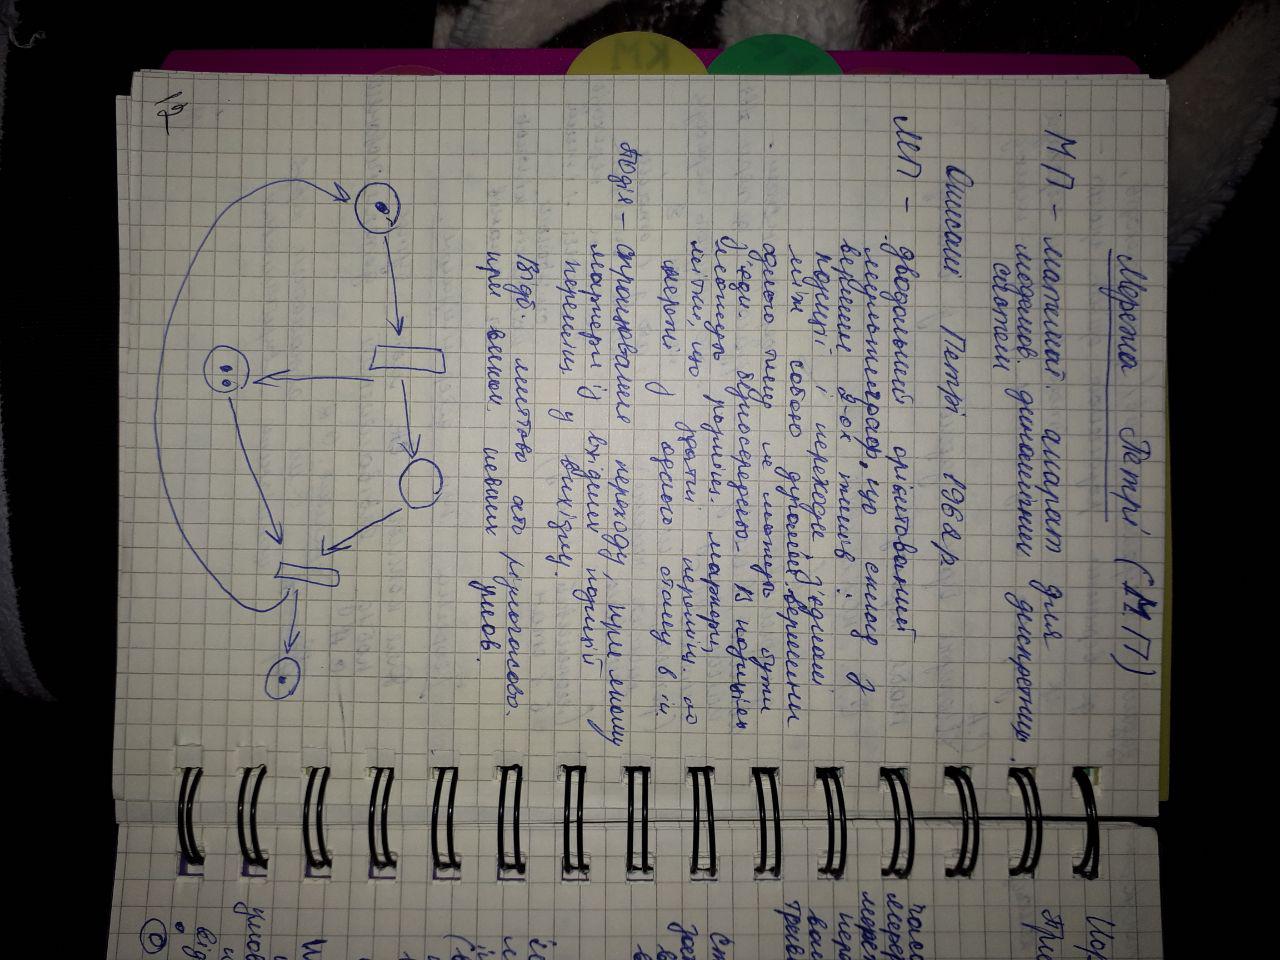 Мережа Петрі (М.П)
МП – математ. апарат для
моделюв. динамічних дискретних
систем
Описані Петрі 1962р.
МП – дводольний орієнтований
мультиграф, що склад з
вершин 2-ох типів :
позиції і переходи, з'єднані
між собою дугами. вершини
одного типу не можуть бути
з'єдн. безпосередньо. В позиціях
можуть розміщ. маркери,
мітки, що здатні переміщ. по
мережі з одного стану в ін.
Подія – спрацювання переходу, при якому
маркери із вхідних позицій
переміщ у вихідну.
Відб. миттєво або різночасово
при викон. певних умов.
12
Пор
При
часо
мереж
пере
трив
умов
від